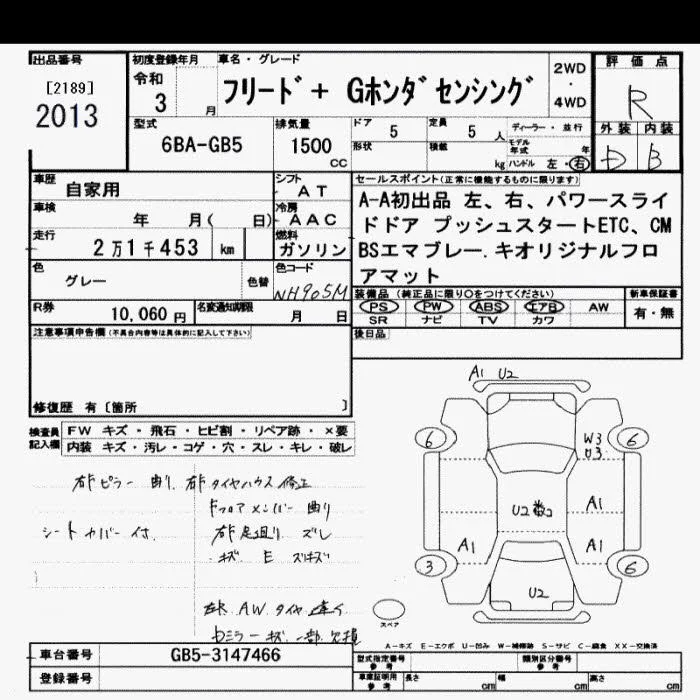 出品番号
[2189]
2013
初度登録年月
令和
3 月
車名・グレード
フリード+ Gホンダセンシング
2WD
・
4WD
評価点
R
外装 内装
D B
型式
6BA-GB5
排気量
1500
CC
ドア
5
定員
5 人
形状
積載
kg
ディーラー・並行
モデル年式 年
ハンドル 左・右
車歴
自家用
シフト
AT
車検
年 月( 日)
冷房
AAC
走行
2万1千453 km
燃料
ガソリン
色
グレー
色替
色コード
NH905M
R券
10,060 円
名変通知期限
月 日
セールスポイント(正常に機能するものに限ります)
A-A初出品 左、右、パワースライ
ドドア プッシュスタートETC、CM
BSエマブレー.キオリジナルフロ
アマット
装備品 (純正品に限り○をつけてください)
PS PW ABS エアB AW
SR ナビ TV カワ
新車保証書
有・無
後日品
注意事項申告欄(不具合内容等は具体的に記入して下さい)
修復歴 有〔箇所 〕
検査員
記入欄
FW キズ・飛石・ヒビ割・リペア跡・×要
内装 キズ・汚レ・コゲ・穴・スレ・キレ・破レ
右Fピラー 曲り 右Fタイヤハウス 修正
Fフロアメンバー 曲り
シートカバー付
右F足廻り ズレ
キズ E
AW タイヤ 違イ
ミラーキズ 一部欠損
A1 U2
6
W3
U3
6
U2
A1
A1
A1
3
6
U2
スペア
A-キズ E-エクボ U-凹み W-補修跡 S-サビ C-腐食 XX-交換済
車台番号
GB5-3147466
登録番号
型式指定番号
参考
類別区分番号
参考
車庫証明用
参考
長さ cm
幅 cm
高さ cm